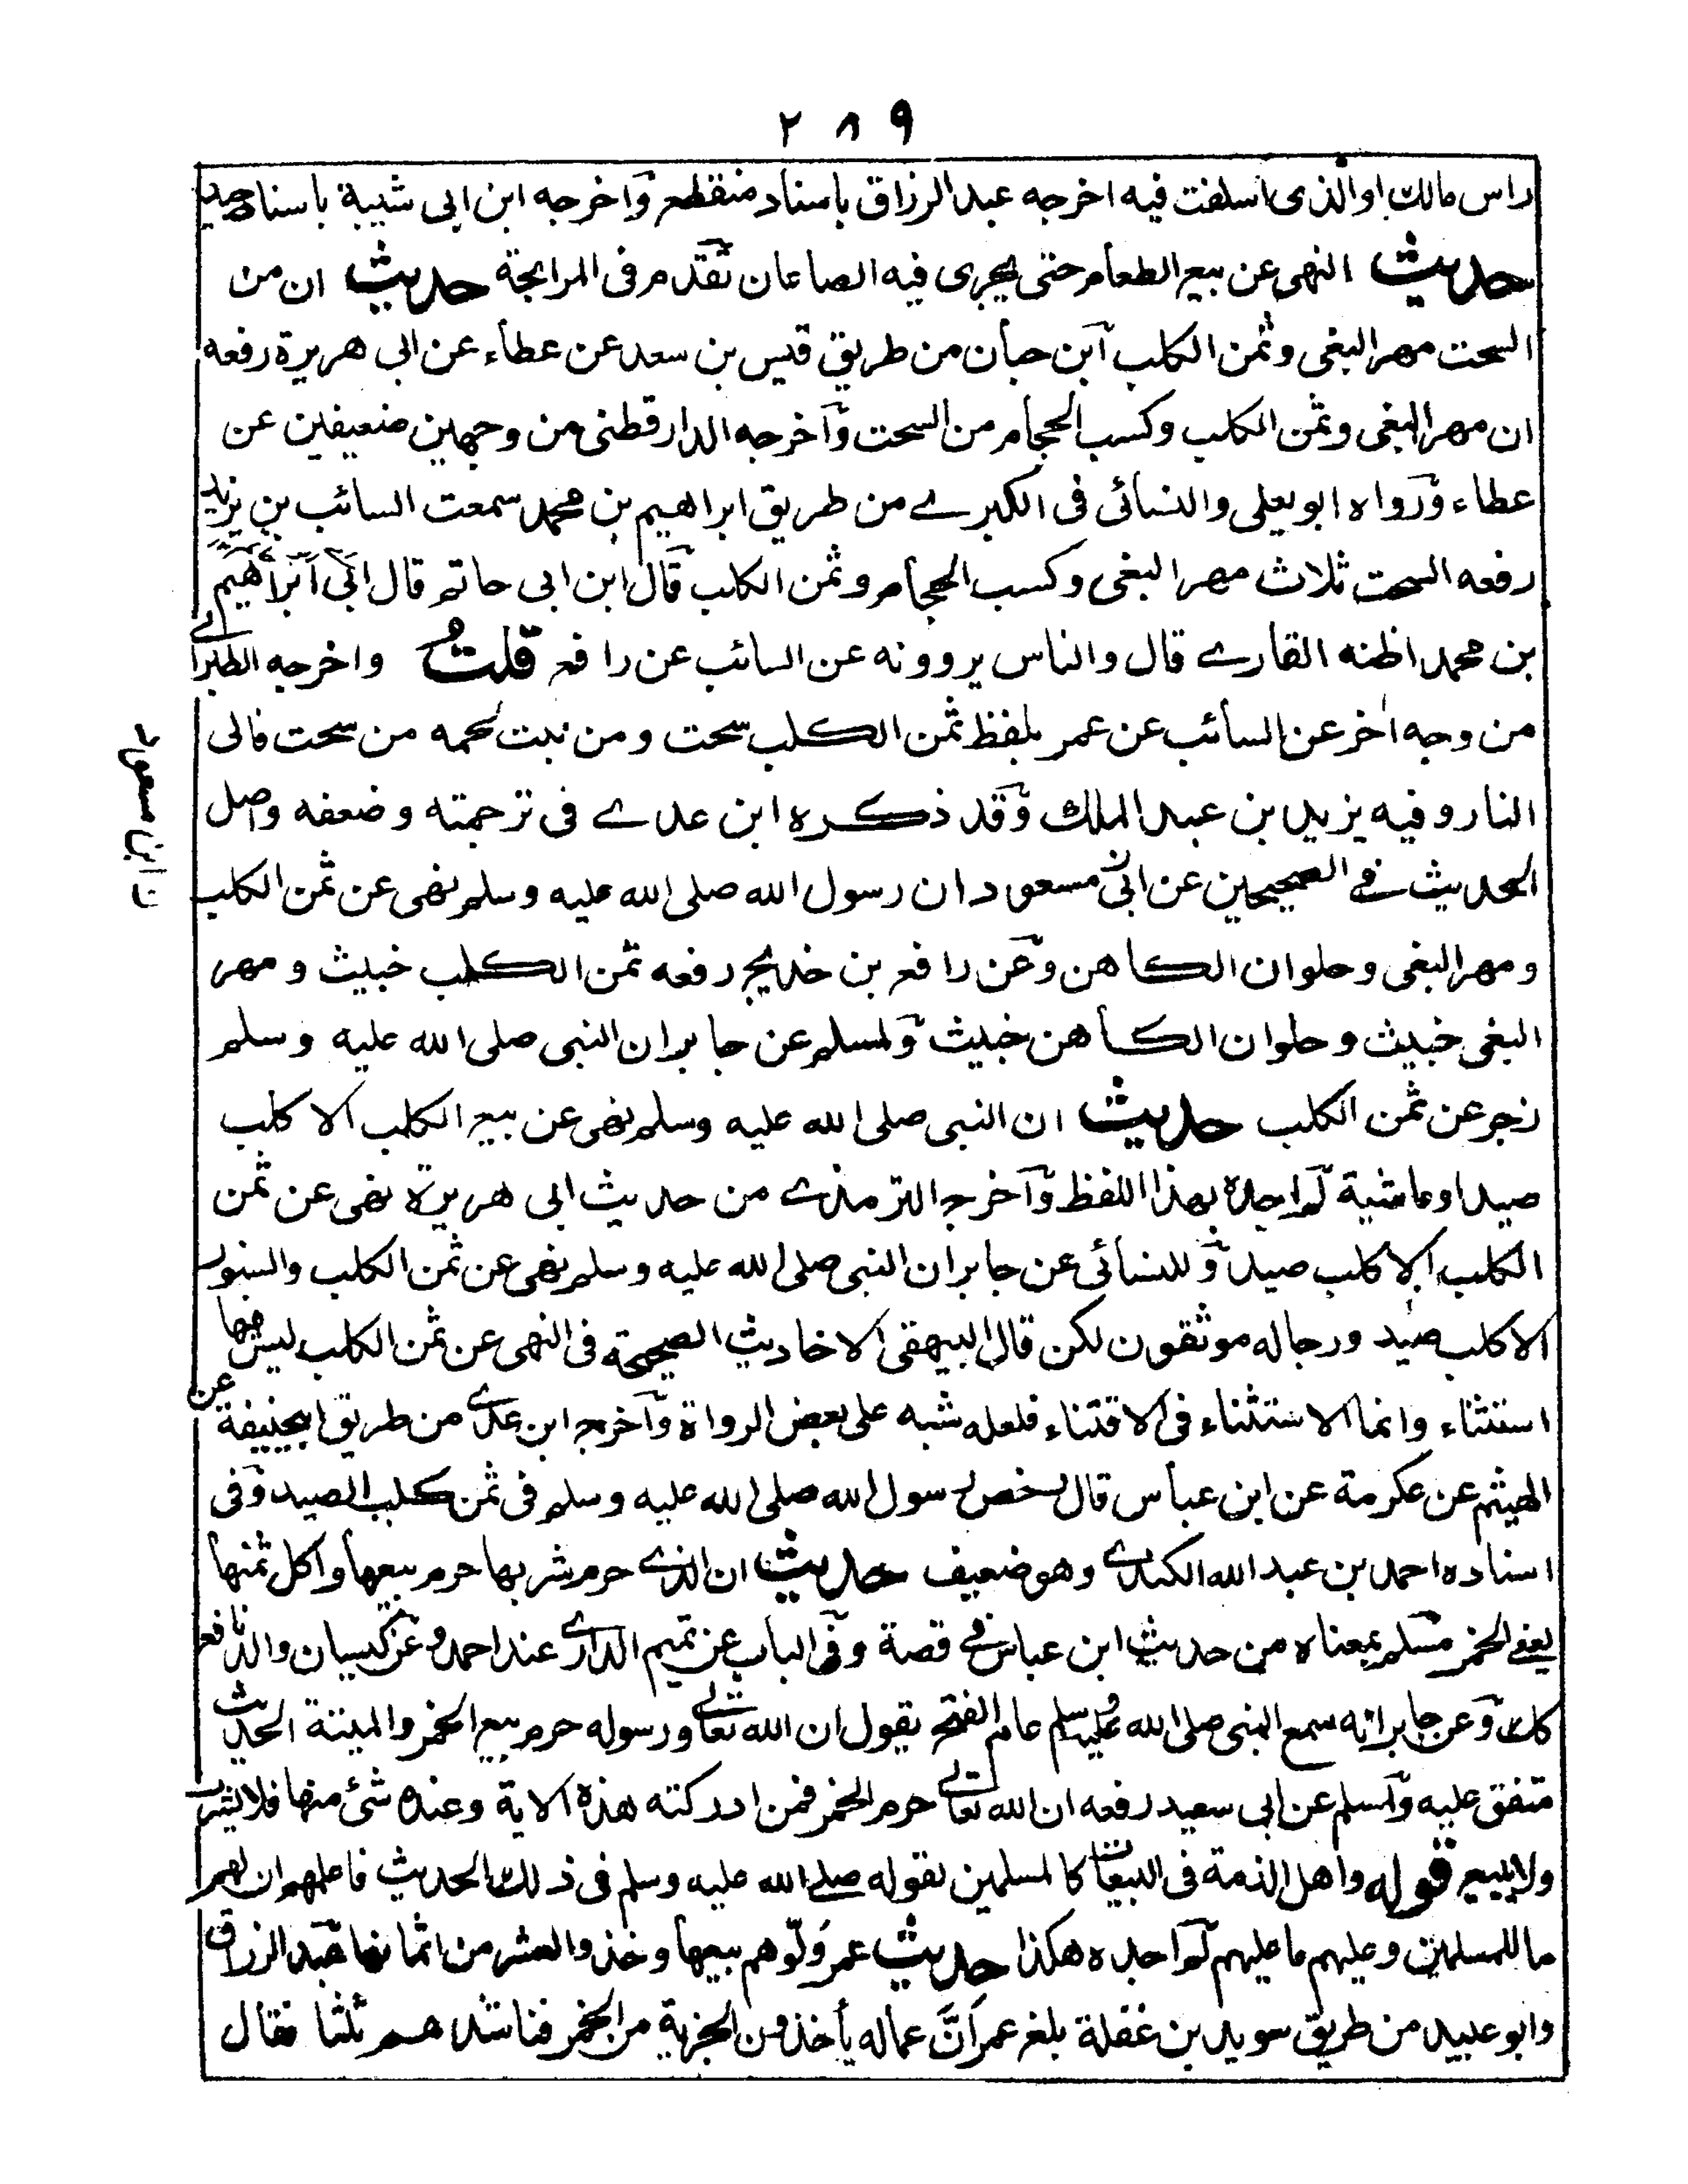 ٢٨٩
راس مالك او الذى اسلفت فيه اخرجه عبد الرزاق باسناد منقطع وآخرجه ابن ابى شيبة باسناد جيد
حديث النهى عن بيع الطعام حتى يجرى فيه الصاعان تقدم فى المرابحة حديث ان من
السحت مهر البغى وثمن الكلب آبن حبان من طريق قيس بن سعد عن عطاء عن ابى هريرة رفعه
ان مهر البغى وثمن الكلب وكسب الحجام من السحت وآخرجه الدارقطنى من وجهين ضعيفين عن
عطاء ورواه ابو يعلى والنسائى فى الكبرے من طريق ابراهيم بن محمد سمعت السائب بن يزيد
رفعه السحت ثلاث مهر البغى وكسب الحجام وثمن الكلب قال ابن ابى حاتم قال ابى آبراهيم
بن محمد اظنه القارے قال والناس يروونه عن السائب عن رافع قلتُ واخرجه الطبرانے
من وجه اخر عن السائب عن عمر بلفظ ثمن الكلب سحت ومن نبت لحمه من سحت فالى
النار وفيه يزيد بن عبد الملك وقد ذكره ابن عدے فى ترجمته وضعفه واصل
الحديث فے الصحيحين عن ابى مسعود ان رسول الله صلى الله عليه وسلم نهى عن ثمن الكلب
ومهر البغى وحلوان الكاهن وعن رافع بن خديج رفعه ثمن الكلب خبيث ومهر
البغى خبيث وحلوان الكاهن خبيث ولمسلم عن جابر ان النبى صلى الله عليه وسلم
زجر عن ثمن الكلب حديث ان النبى صلى الله عليه وسلم نهى عن بيع الكلب الا كلب
صيد او ماشية لم اجده بهذا اللفظ وآخرجه الترمذے من حديث ابى هريرة نهى عن ثمن
الكلب الا كلب صيد وللنسائى عن جابر ان النبى صلى الله عليه وسلم نهى عن ثمن الكلب والسنور
الا كلب صيد ورجاله موثقون لكن قال البيهقى الاحاديث الصحيحة فى النهى عن ثمن الكلب ليس فيها
استثناء وانما الاستثناء فى الاقتناء فلعله شبه على بعض الرواة وآخرجه ابن عدے من طريق ابيحنيفة عن
الهيثم عن عكرمة عن ابن عباس قال رخص رسول الله صلى الله عليه وسلم فى ثمن كلب الصيد وفى
اسناده احمد بن عبد الله الكندے وهو ضعيف حديث ان الذے حرم شربها حرم بيعها واكل ثمنها
يعنے الخمر مسلم بمعناه من حديث ابن عباس فے قصة وفى الباب عن تميم الدارے عند احمد وعن كيسان والد نافع
كذلك وعن جابر انه سمع النبى صلى الله عليه وسلم عام الفتح يقول ان الله تعالے ورسوله حرم بيع الخمر والميتة الحديث
متفق عليه ولمسلم عن ابى سعيد رفعه ان الله تعالے حرم الخمر فمن ادركته هذه الاية وعنده شئ منها فلا يشرب
ولا يبيع قوله واهل الذمة فى البياعات كالمسلمين لقوله صلے الله عليه وسلم فى ذلك الحديث فاعلمهم ان لهم
ما للمسلمين وعليهم ما عليهم لم اجده هكذا حديث عمر وَلّوهم بيعها وخذوا العشر من اثمانها عبد الرزاق
وابو عبيد من طريق سويد بن غفلة بلغ عمر اَنَّ عماله يأخذون الجزية من الخمر فناشدهم ثلثا فقال
ن ابن مسعود